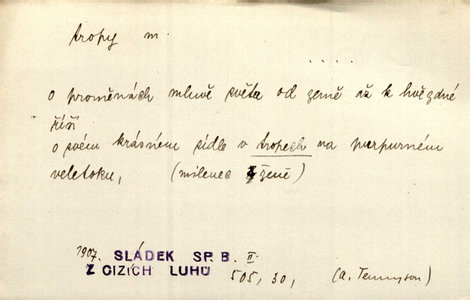 tropy m.
. . . .
o proměnách mluvě světa od země až k hvězdné
říši
o svém krásném sídle v tropech na purpurném
veletoku, (milenec ženě)
1907. SLÁDEK SP. B. II.
Z CIZÍCH LUHŮ 505, 30, (A. Tennyson)